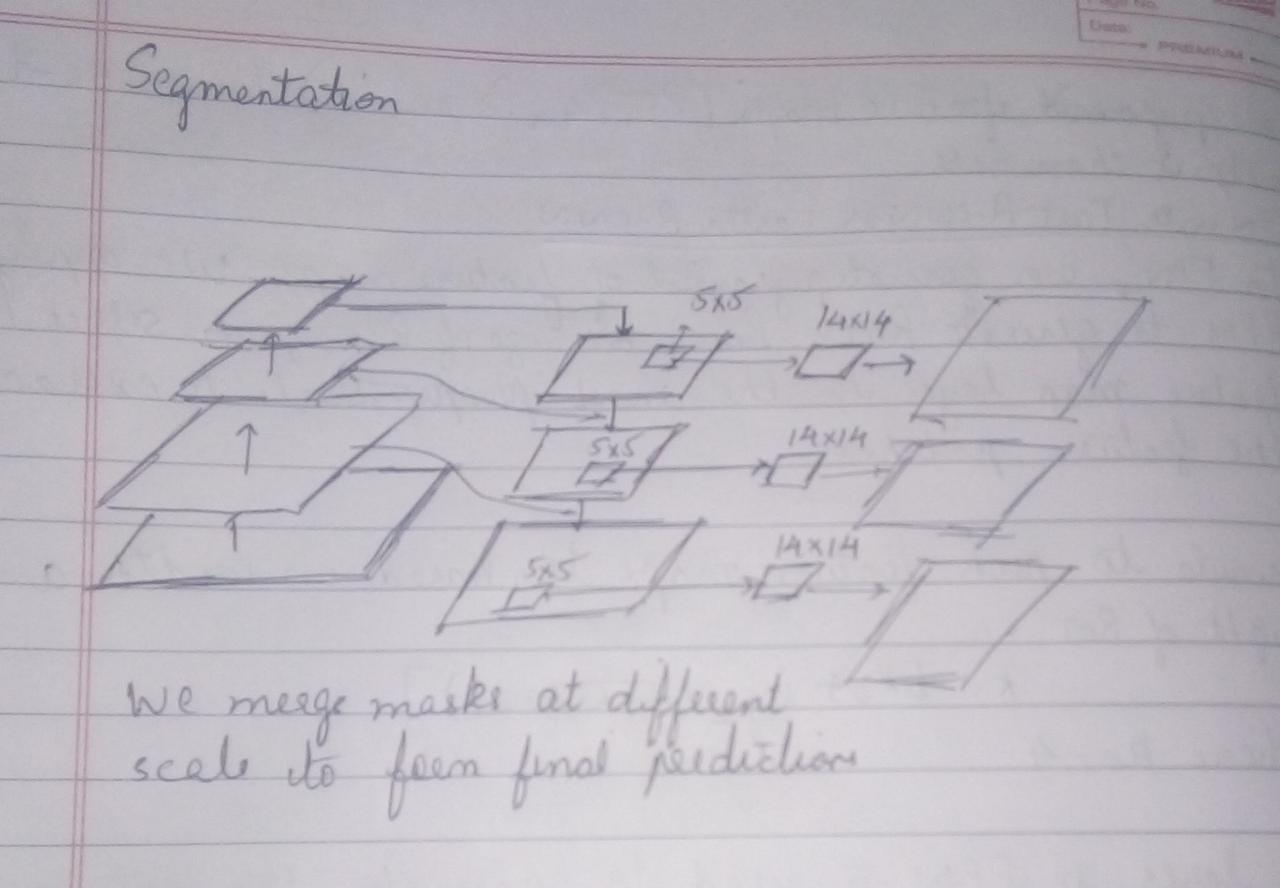 Page No.
Date:
PREMIUM
Segmentation
5x5
14x14
5x5
14x14
5x5
14x14
We merge masks at different
scale to form final prediction